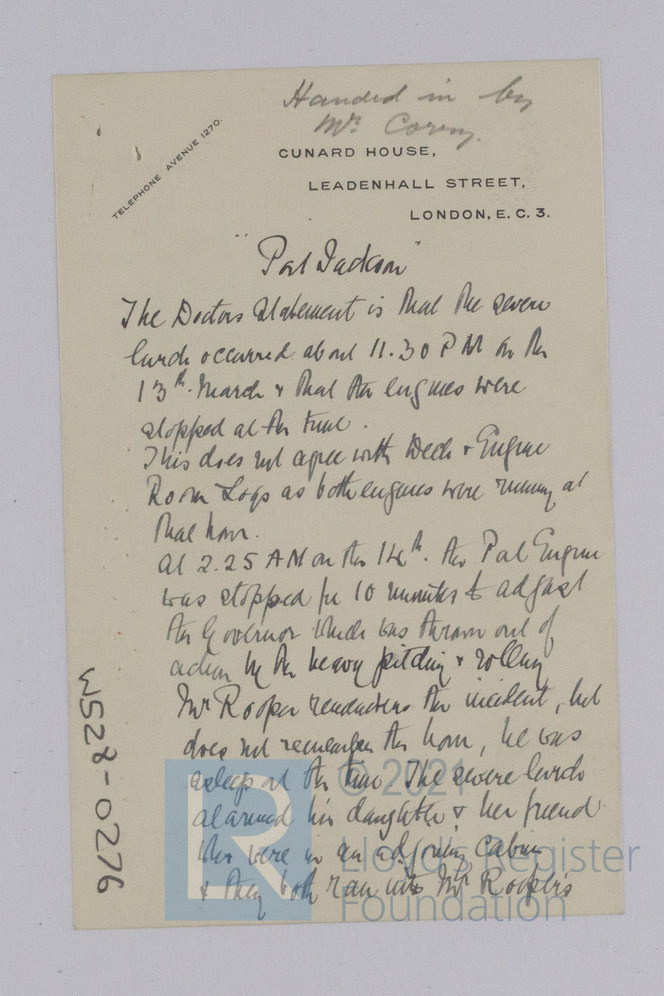 Handed in by
Mr. Corry.
TELEPHONE AVENUE 1270.
CUNARD HOUSE,
LEADENHALL STREET,
LONDON, E. C. 3.
"Port Jackson"
The Doctors statement is that the severe
lurch occurred about 11.30 PM on the
13th. March & that the engines were
stopped at the time.
This does not agree with Deck & Engine
Room Logs as both engines were running at
that hour.
At 2.25 AM on the 14th. the Port Engine
was stopped for 10 minutes to adjust
the Governor which was thrown out of
action by the heavy pitching & rolling
Mr Rooper remembers the incident, but
does not remember the hour, he was
asleep at the time The severe lurch
alarmed his daughter & her friend
who were in an adjoining cabin
& they both ran into Mr Rooper's
W528-0276
© 2021
Lloyd's Register
Foundation